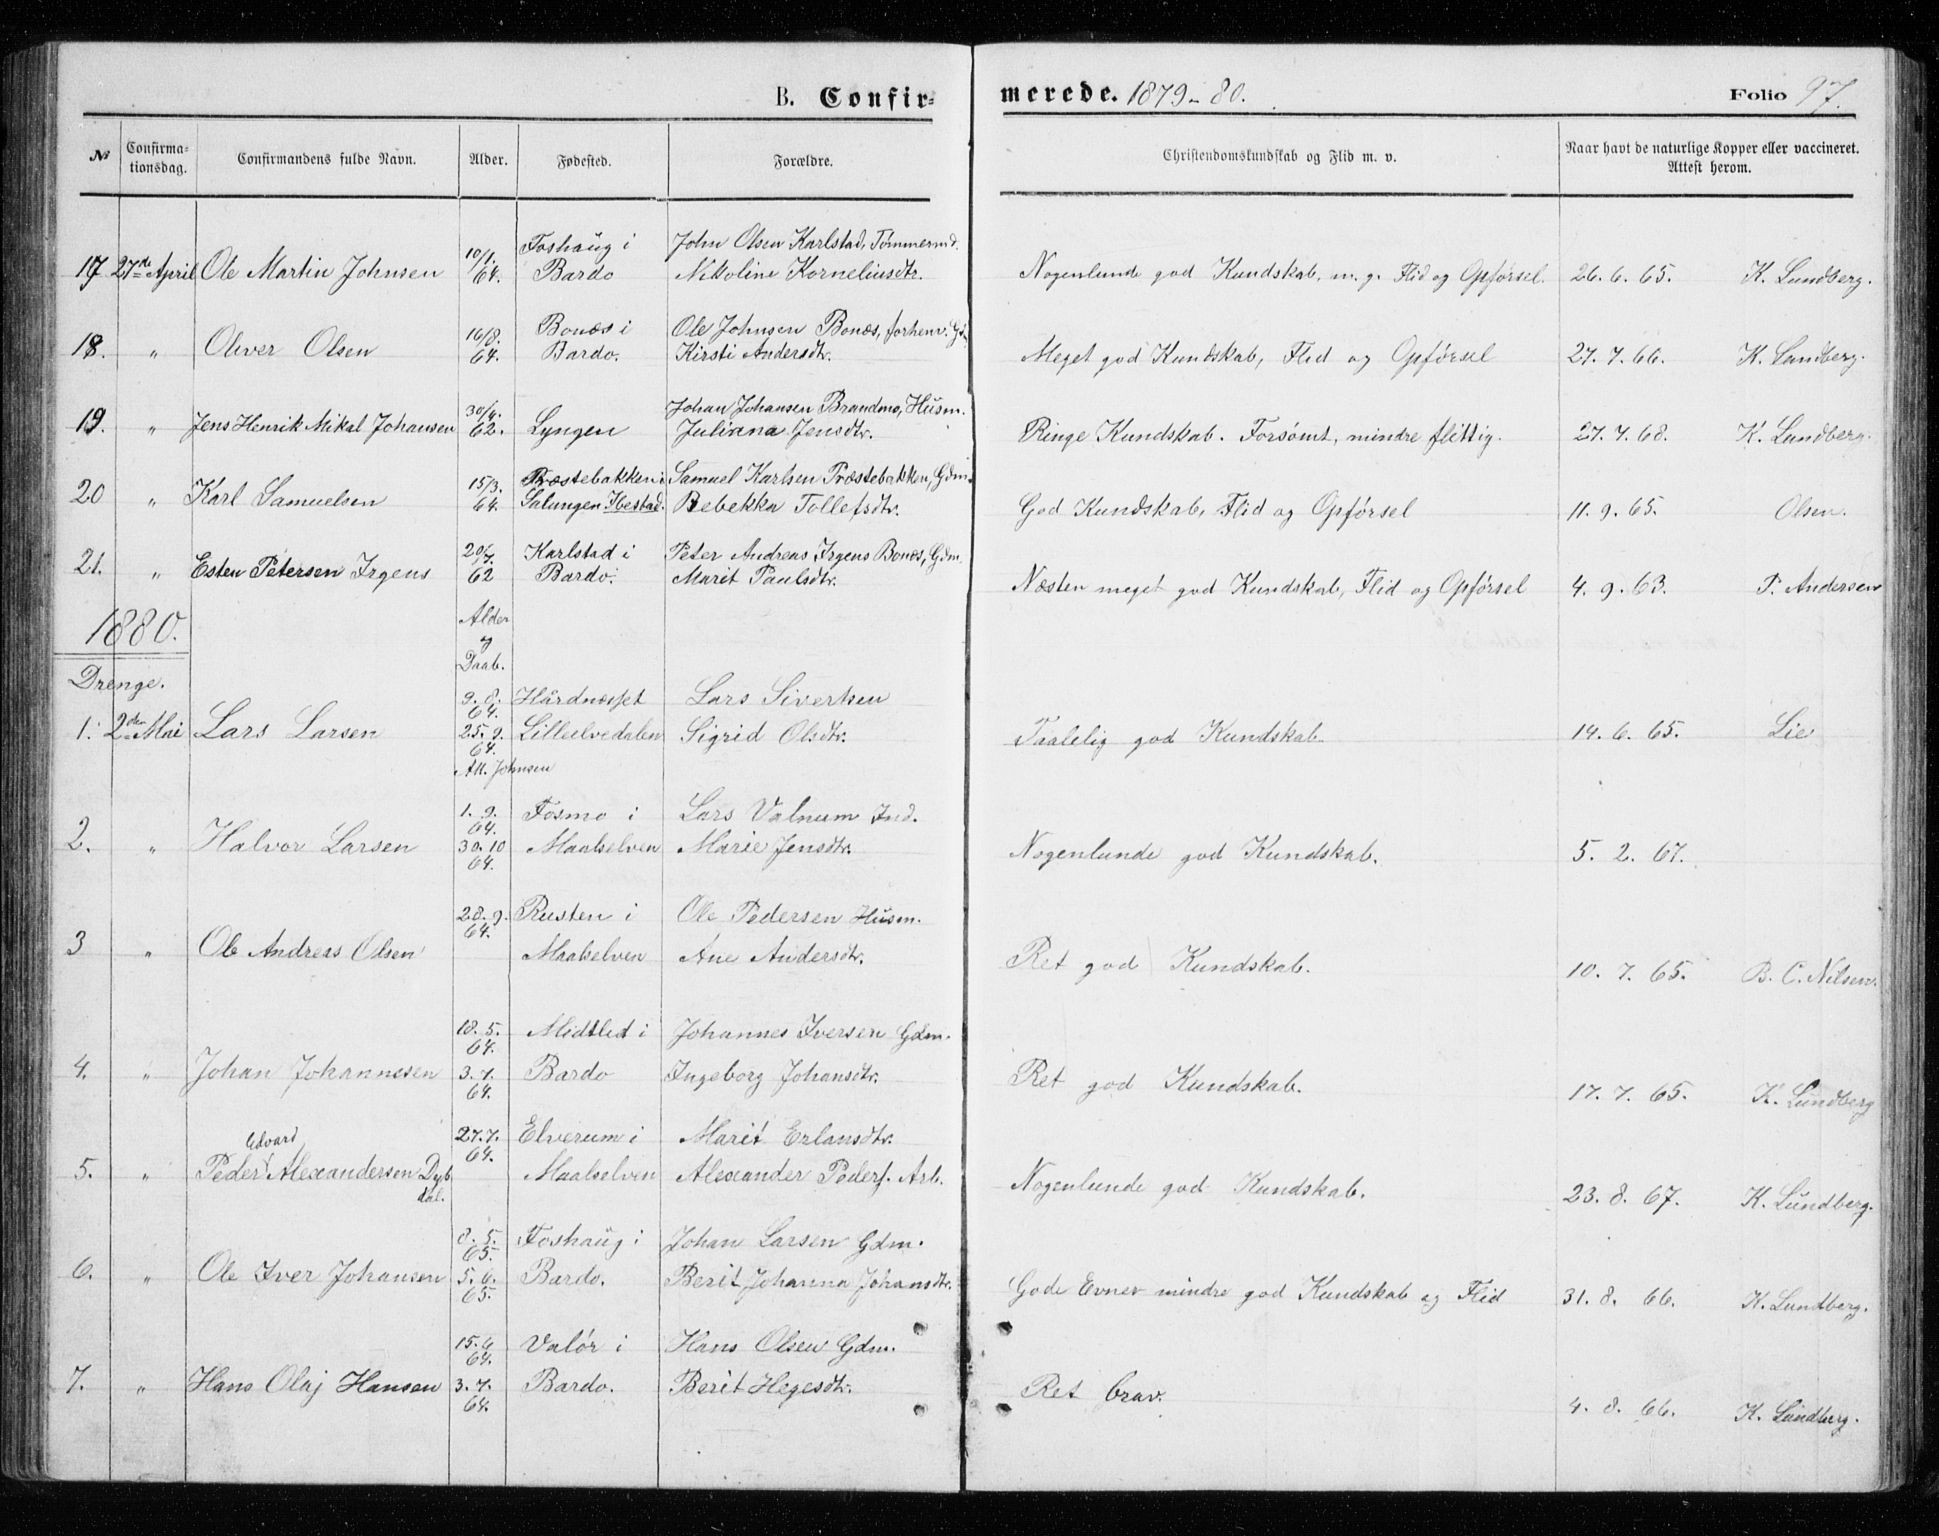 B. Confir- merede. 1879-80. Folio 97.
№ Confirma-tionsdag. Confirmandens fulde Navn. Alder. Fødested. Forældre. Christendomskundskab og Flid m. v. Naar havt de naturlige Kopper eller vaccineret. Attest herom.
10/1. Foshaug i John Olsen Karlstad, Tømmermd.
17 27de April Ole Martin Johnsen 64. Bardo Nikoline Korneliusdtr. Nogenlunde god Kundskab, m. g. Flid og Opførsel. 26. 6. 65. K. Lundberg.
16/8. Bonæs i Ole Johnsen Bonæs, forhenv.
18. " Oliver Olsen 64. Bardo. Kirsti Andersdtr. Meget god Kundskab, Flid og Opførsel 27. 7. 66. K. Lundberg.
30/4. Johan Johansen Brandmo, Husm.
19. " Jens Henrik Mikal Johansen 62. Lyngen Julianna Jensdtr. Ringe Kundskab. Forsømt, mindre flittig. 27. 7. 68. K. Lundberg.
15/3. Præstebakken i Samuel Karlsen Præstebakken, Gdm.
20 " Karl Samuelsen 64. Salungen Ibestad. Rebekka Tollefsdtr. God Kundskab, Flid og Opførsel 11. 9. 65. Olsen.
20/7. Karlstad i Peter Andreas Irgens Bonæs, Gdm.
21. " Esten Petersen Irgens 62 Bardo. Marit Paulsdtr. Næsten meget god Kundskab, Flid og Opførsel 4. 9. 63. P. Andersen
1880. Alder
og
Daab.
Drenge.
9. 8. 64. Hårdnæsset Lars Sivertsen
1. 2den Mai Lars Larsen 25. 9. 64. Lilleelvedalen Sigrid Olsdtr. Taalelig god Kundskab 14. 6. 65. Lie
Att. Johnsen
1. 9. 64. Fosmo i Lars Valnum Ind.
2. " Halvor Larsen 30. 10 64. Maalselven Marie Jensdtr. Nogenlunde god Kundskab. 5. 2. 67.
28. 9. 64. Rusten i Ole Pedersen Husm.
3 " Ole Andreas Olsen Maalselven Ane Andersdtr. Ret god Kundskab. 10. 7. 65. B. C. Nilsen.
18. 5. 64. Midtlid i Johannes Iversen Gdm.
4. " Johan Johannesen 3. 7. 64. Bardo Ingeborg Johansdtr. Ret god Kundskab. 17. 7. 65. K. Lundberg
Edvard 27. 7. 64. Elverum i Marit Erlansdtr.
5. " Peder Alexandersen Dyb Maalselven Alexander Peders. Arb. Nogenlunde god Kundskab. 23. 8. 67. K. Lundberg.
dal.
8. 5. 65. Foshaug i Johan Larsen Gdm.
6. " Ole Iver Johansen 5. 6. 65. Bardo. Berit Johanna Johansdtr. Gode Evner mindre god Kundskab og Flid 31. 8. 66. K. Lundberg.
15. 4 64. Valør i Hans Olsen Gdm.
7. " Hans Olaj Hansen 3. 7. 64. Bardo. Berit Hegesdtr. Ret brav. 4. 8. 66. K. Lundberg.